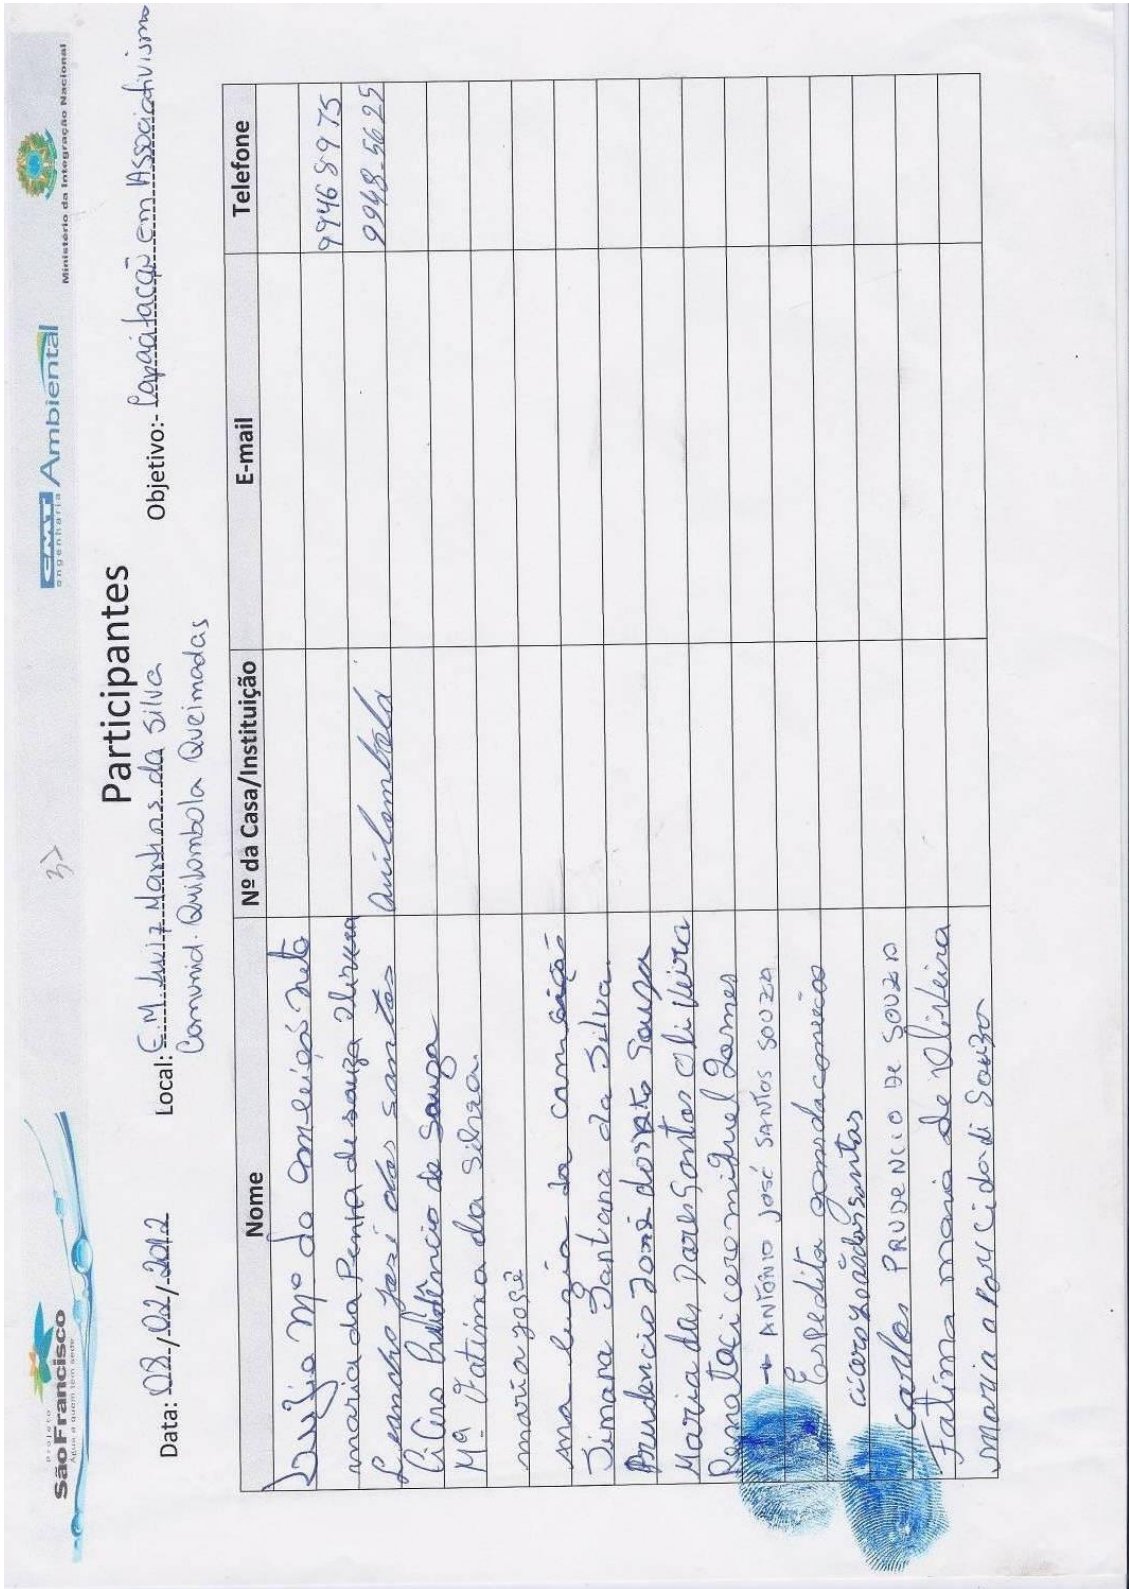 Projeto
São Francisco
Água a quem tem sede
3>
CMT Ambiental
engenharia
Ministério da Integração Nacional
Participantes
Data: 08/02/2012 Local: E.M. Luiz Manhas da Silva Objetivo:- Capacitação em Associativismo
Comunid. Quilombola Queimadas
Nome Nº da Casa/Instituição E-mail Telefone
Mª da Conceição Neto
maria da Penha de souza Olivera 99468975
Leandro José dos santos Quilombola 9948-5625
Cicero Prudêncio de Souza
Mª Fatima da Silva
maria José
ana luzia da conseição
Simara Santana da Silva.
Prudencio José dos Santos Souza
Maria das Dores Santos Oliveira
Renata cicero miguel Gomes
ANTÔNIO JOSÉ SANTOS SOUZA
Espedita gomes da conceicão
cicero joão dos santos
Carlos PRUDENCIO DE SOUZA
Fatima maria de Oliveira
maria aparecida di Souza